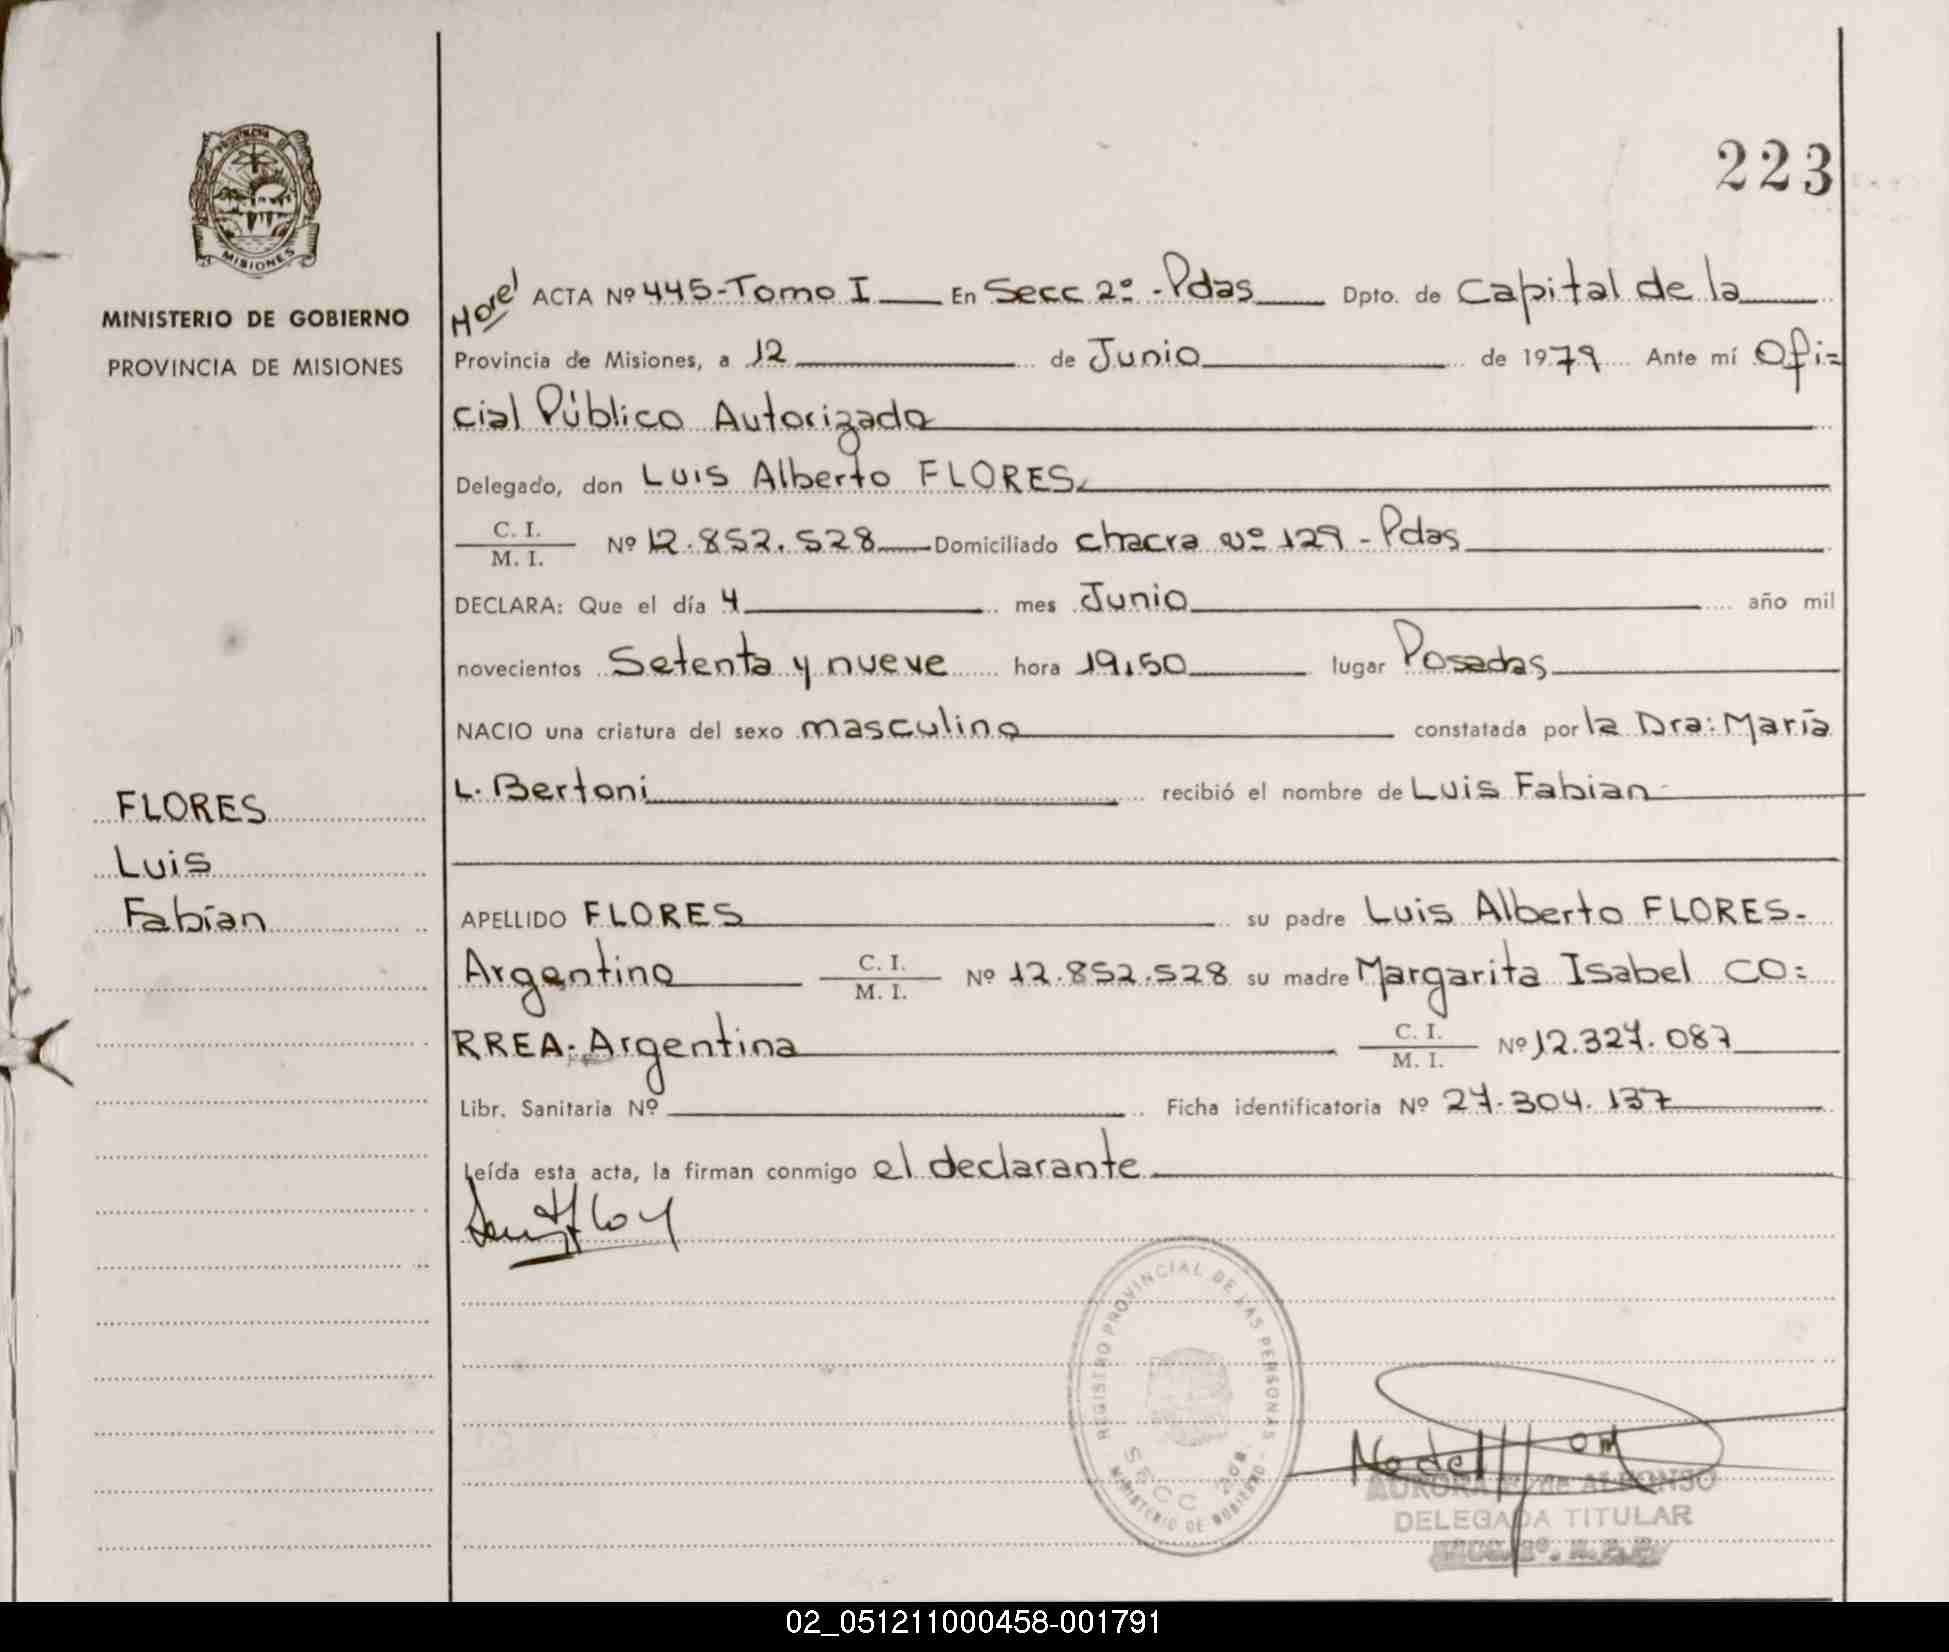 223
PROVINCIA DE
MISIONES
MINISTERIO DE GOBIERNO
PROVINCIA DE MISIONES
ACTA Nº 445-Tomo I En Secc 2º - Pdas Dpto. de Capital de la
Provincia de Misiones, a 12 de Junio de 1979 Ante mí Ofi=
cial Público Autorizado
Delegado, don Luis Alberto FLORES.
C. I.
M. I.
Nº 12.852.528 Domiciliado chacra nº 129 - Pdas
DECLARA: Que el día 4 mes Junio año mil
novecientos Setenta y nueve hora 19,50 lugar Posadas
NACIO una criatura del sexo masculino constatada por la Dra: María
L. Bertoni recibió el nombre de Luis Fabian
FLORES
Luis
Fabían
APELLIDO FLORES su padre Luis Alberto FLORES.
Argentino C. I. Nº 12.852.528 su madre Margarita Isabel CO=
M. I.
RREA. Argentina C. I. Nº 12.327.087
M. I.
Libr. Sanitaria Nº Ficha identificatoria Nº 27.304.137
Leída esta acta, la firman conmigo el declarante
REGISTRO PROVINCIAL DE LAS PERSONAS
MINISTERIO DE GOBIERNO
SECC 2
AURORA de ALFONSO
DELEGADA TITULAR
02_051211000458-001791